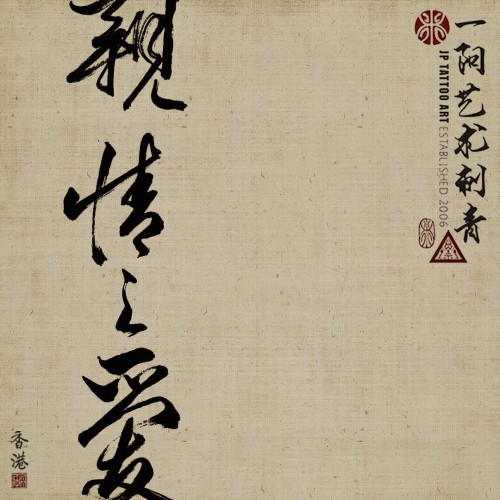 一阳艺术刺青
JP TATTOO ART ESTABLISHED 2006
親情之愛
香港